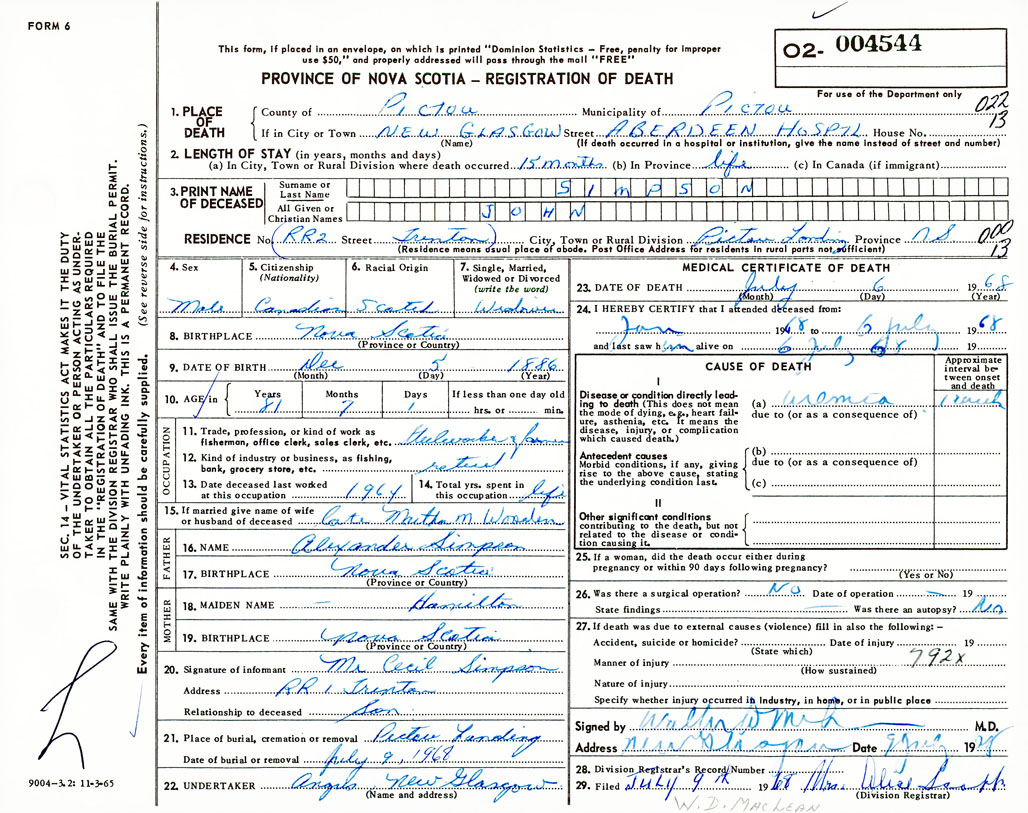 FORM 6
This form, if placed in an envelope, on which is printed "Dominion Statistics – Free, penalty for improper
use $50," and properly addressed will pass through the mail "FREE"
PROVINCE OF NOVA SCOTIA – REGISTRATION OF DEATH
O2- 004544
For use of the Department only
022
13
1. PLACE OF DEATH
County of PICTOU Municipality of PICTOU
If in City or Town NEW GLASGOW Street ABERDEEN HOSPTL House No.
(Name) (If death occurred in a hospital or institution, give the name instead of street and number)
2. LENGTH OF STAY (in years, months and days)
(a) In City, Town or Rural Division where death occurred 15 months (b) In Province life (c) In Canada (if immigrant)
3. PRINT NAME OF DECEASED
Surname or Last Name SIMPSON
All Given or Christian Names JOHN
RESIDENCE No. (RR2 Street Trenton) City, Town or Rural Division Pictou Province NS
(Residence means usual place of abode. Post Office Address for residents in rural parts not sufficient)
000
13
4. Sex
Male
5. Citizenship
(Nationality)
Canadian
6. Racial Origin
Scotch
7. Single, Married,
Widowed or Divorced
(write the word)
8. BIRTHPLACE Nova Scotia
(Province or Country)
9. DATE OF BIRTH Dec 5 1886
(Month) (Day) (Year)
10. AGE in Years Months Days If less than one day old
81 7 1 hrs. or min.
OCCUPATION
11. Trade, profession, or kind of work as
fisherman, office clerk, sales clerk, etc. Steelworker & farmer
12. Kind of industry or business, as fishing,
bank, grocery store, etc. retired
13. Date deceased last worked
at this occupation 1964
14. Total yrs. spent in
this occupation life
15. If married give name of wife
or husband of deceased Late Martha M Wooden
FATHER
16. NAME Alexander Simpson
17. BIRTHPLACE Nova Scotia
(Province or Country)
MOTHER
18. MAIDEN NAME – Hamilton
19. BIRTHPLACE Nova Scotia
(Province or Country)
20. Signature of informant Mr Cecil Simpson
Address RR 1 Trenton
Relationship to deceased Son
21. Place of burial, cremation or removal Pictou Landing
Date of burial or removal July 9, 1968
22. UNDERTAKER Angus New Glasgow
(Name and address)
MEDICAL CERTIFICATE OF DEATH
23. DATE OF DEATH July 6 1968
(Month) (Day) (Year)
24. I HEREBY CERTIFY that I attended deceased from:
Jan 1968 to 6 July 1968
and last saw him alive on 6 July 68 19
CAUSE OF DEATH
Approximate
interval be-
tween onset
and death
I
Disease or condition directly lead-
ing to death (This does not mean
the mode of dying, e.g., heart fail-
ure, asthenia, etc. It means the
disease, injury, or complication
which caused death.)
(a) uremia
due to (or as a consequence of)
Antecedent causes
Morbid conditions, if any, giving
rise to the above cause, stating
the underlying condition last.
(b)
due to (or as a consequence of)
(c)
II
Other significant conditions
contributing to the death, but not
related to the disease or condi-
tion causing it.
25. If a woman, did the death occur either during
pregnancy or within 90 days following pregnancy?
(Yes or No)
26. Was there a surgical operation? NO Date of operation – 19
State findings – Was there an autopsy? No
27. If death was due to external causes (violence) fill in also the following: –
Accident, suicide or homicide? Date of injury 19
(State which)
792x
Manner of injury
(How sustained)
Nature of injury
Specify whether injury occurred in industry, in home, or in public place
Signed by M.D.
Address New Glasgow Date 9 July 19
28. Division Registrar's Record Number
29. Filed JULY 9th 1968 Mrs. Alice
(Division Registrar)
W. D. MACLEAN
SEC. 14 – VITAL STATISTICS ACT MAKES IT THE DUTY
OF THE UNDERTAKER OR PERSON ACTING AS UNDER-
TAKER TO OBTAIN ALL THE PARTICULARS REQUIRED
IN THE "REGISTRATION OF DEATH" AND TO FILE THE
SAME WITH THE DIVISION REGISTRAR WHO SHALL ISSUE THE BURIAL PERMIT.
WRITE PLAINLY WITH UNFADING INK. THIS IS A PERMANENT RECORD.
Every item of information should be carefully supplied. (See reverse side for instructions.)
9004–3.2: 11-3-65